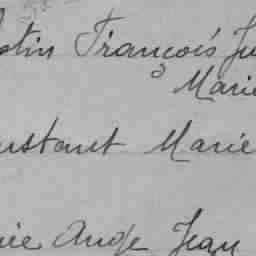 stin François Ju
Marie
nstant Marie
rie Ange Jean